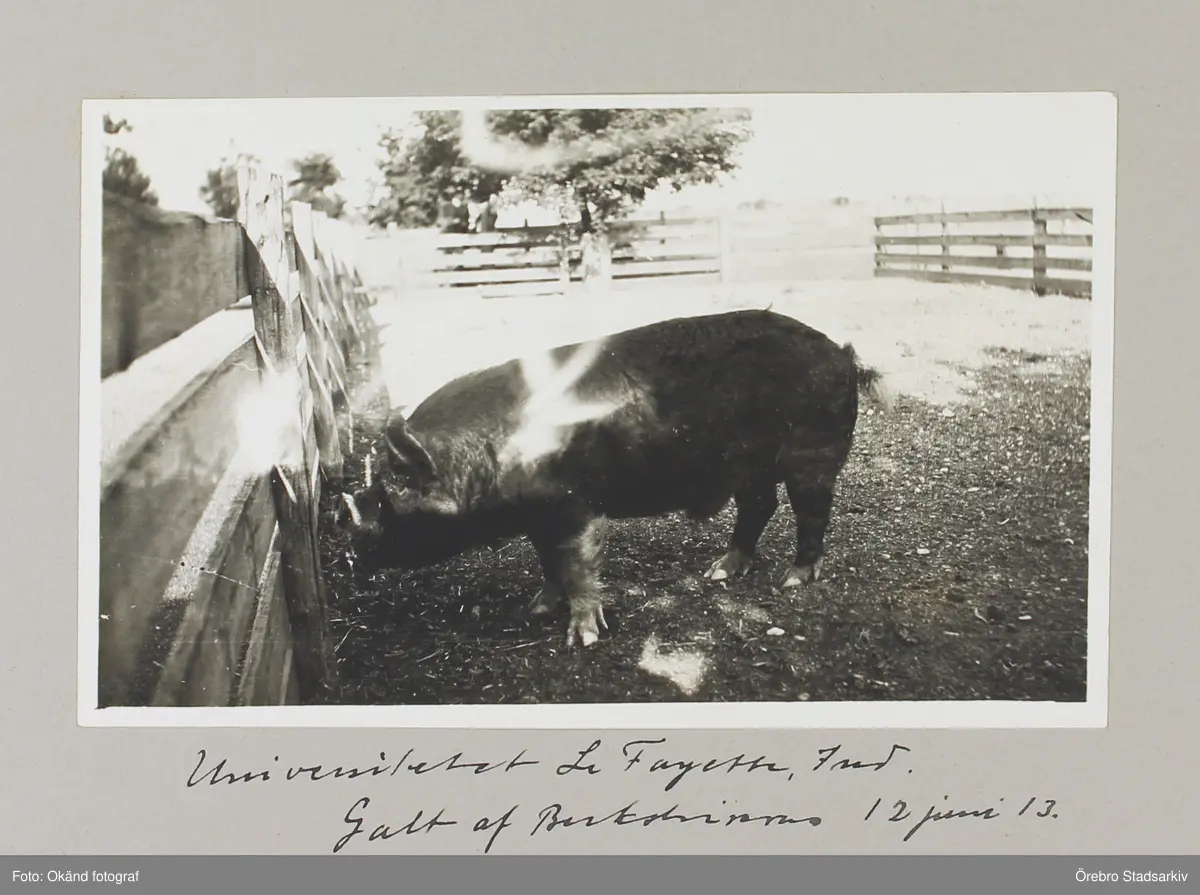 Universitetet La Fayette, Ind.
Galt af Berkshireras 12 juni 13.
Foto: Okänd fotograf
Örebro Stadsarkiv